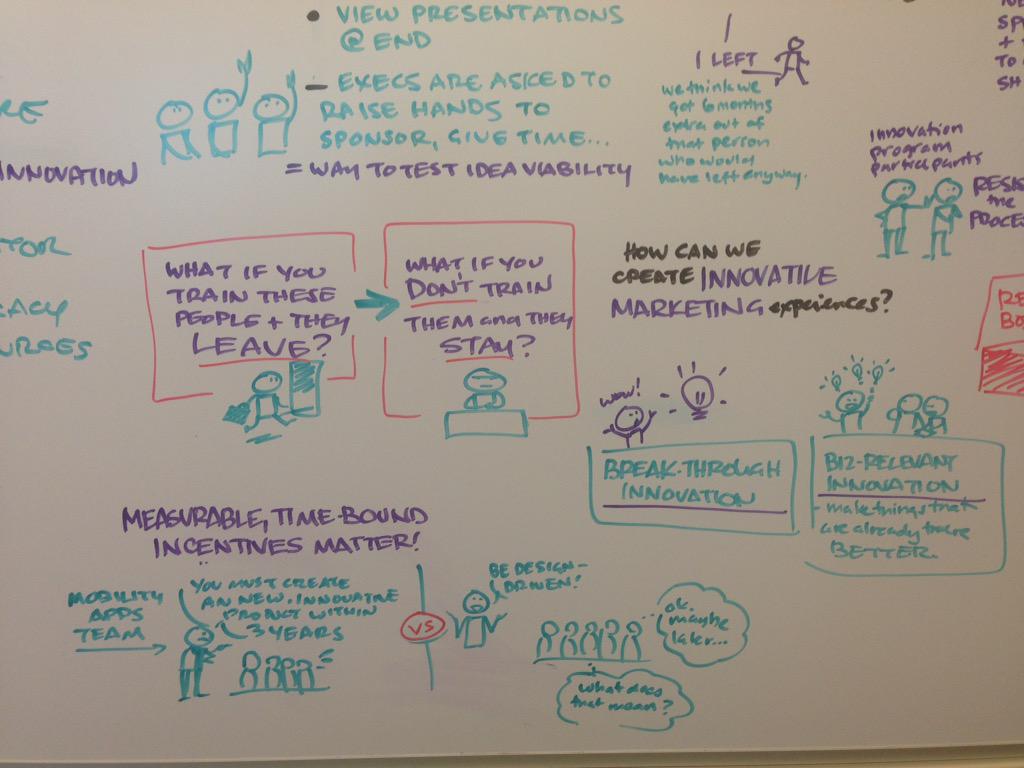 • VIEW PRESENTATIONS
@ END
– EXECS ARE ASKED TO
RAISE HANDS TO
SPONSOR, GIVE TIME...
= WAY TO TEST IDEA VIABILITY
RE
INNOVATION
TOR
CACY
URCES
I LEFT
we think we
got 6 months
extra out of
that person
who would
have left anyway.
SPO
+ T
TO
SH
innovation
program
participants
RESIS
the
PROCES
WHAT IF YOU
TRAIN THESE
PEOPLE + THEY
LEAVE?
WHAT IF YOU
DON'T TRAIN
THEM and THEY
STAY?
HOW CAN WE
CREATE INNOVATIVE
MARKETING experiences?
RE
BO
WOW!
BREAK-THROUGH
INNOVATION
BIZ-RELEVANT
INNOVATION
- make things that
are already there
BETTER.
MEASURABLE, TIME-BOUND
INCENTIVES MATTER!
MOBILITY
APPS
TEAM
YOU MUST CREATE
AN NEW, INNOVATIVE
PRODUCT WITHIN
3 YEARS
VS
BE DESIGN-
DRIVEN!
ok,
maybe
later...
what does
that mean?